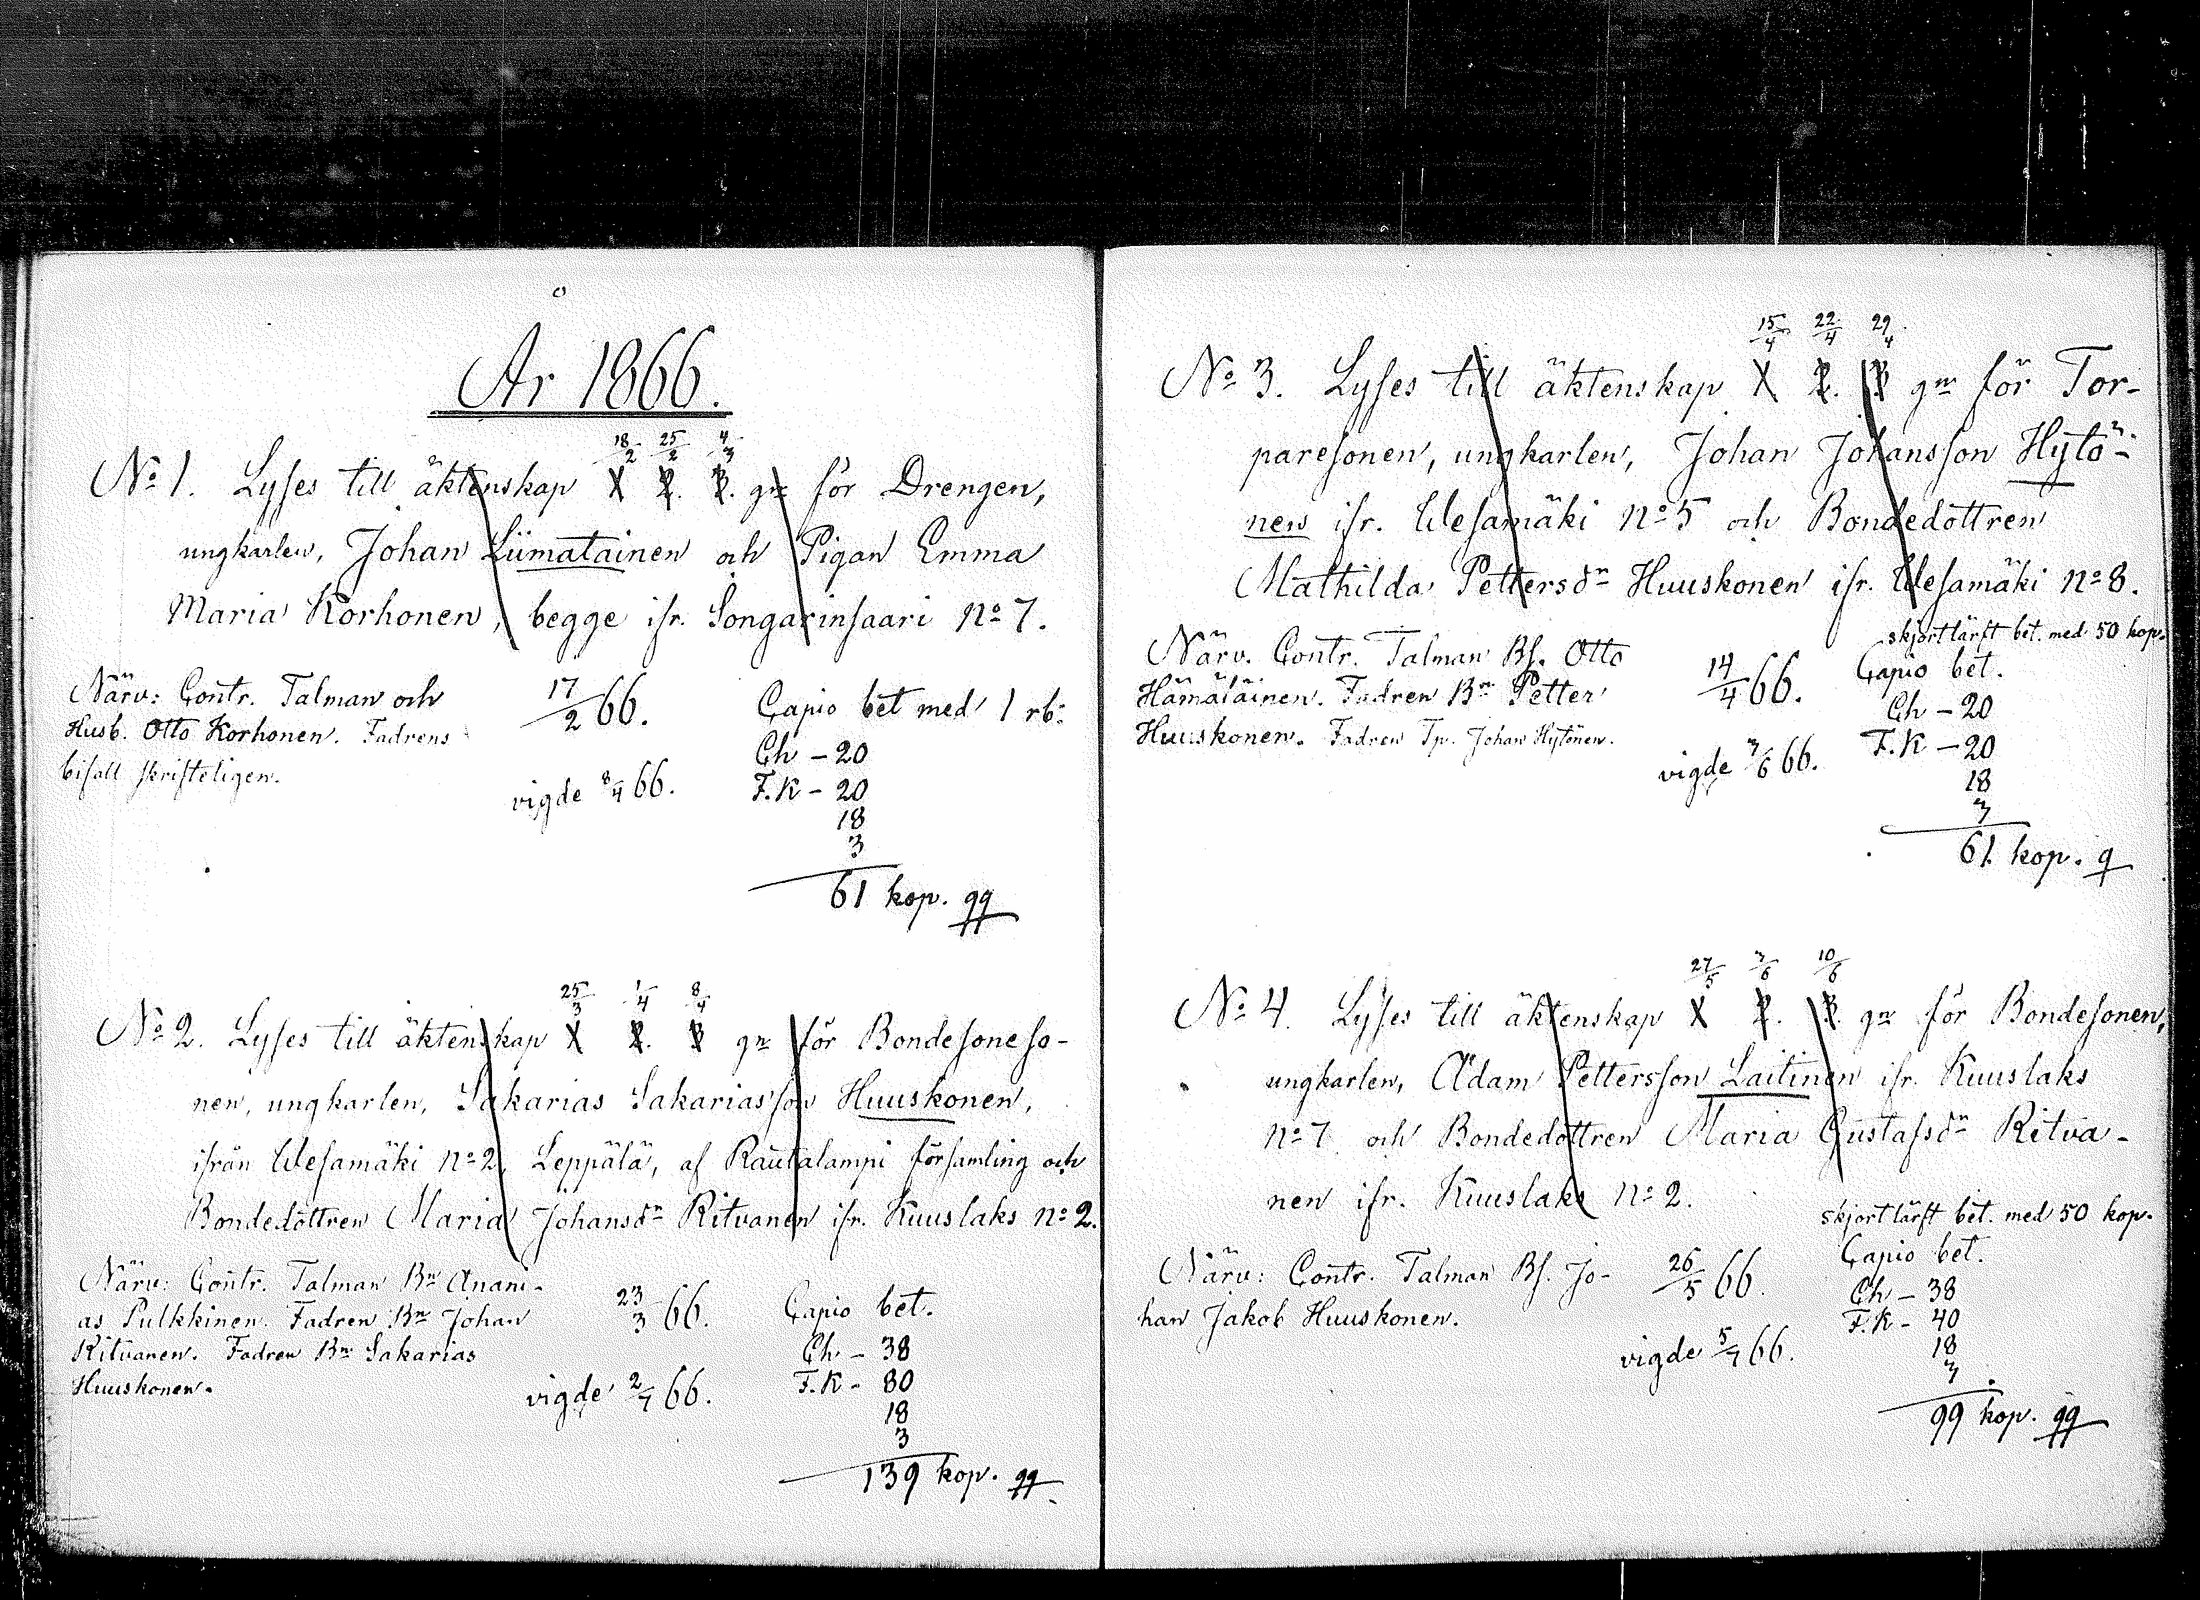 År 1866.
18/2 25/2 4/3
No 1. Lyses till äktenskap 1 2. 3. gn för Drengen,
ungkarlen, Johan Liimatainen och Pigan Emma
Maria Korhonen, begge ifr. Songarinsaari No 7.
Närv: Contr. Talman och
Husb. Otto Korhonen. Fadrens
bifall skrifteligen.
17/2 66.
vigde 8/4 66.
Capio bet med 1 rb:
Ch - 20
F.K - 20
18
3
61 kop. qq
25/3 1/4 8/4
No 2. Lyses till äktenskap 1 2. 3 gn för Bondesoneso-
nen, ungkarlen, Sakarias Sakariasson Huuskonen,
ifrån Wesamäki no 2, Leppälä, af Rautalampi församling och
Bondedottren Maria Johansdn Ritvanen ifr. Kuuslaks no 2.
Närv: Contr. Talman Bn Anani-
as Pulkkinen. Fadren Bn Johan
Ritvanen. Fadren Bn Sakarias
Huuskonen.
23/3 66.
vigde 2/7 66.
Capio bet.
Ch - 38
F.K - 80
18
3
139 kop. qq
15/4 22/4 29/4
No 3. Lyses till äktenskap 1 2. 3 gn för Tor-
paresonen, ungkarlen, Johan Johansson Hytö-
nen ifr. Wesamäki no 5 och Bondedottren
Mathilda Pettersdn Huuskonen ifr. Wesamäki no 8.
skjortlärft bet. med 50 kop.
Närv. Contr. Talman Bs. Otto
Hämäläinen. Fadren Bn Petter
Huuskonen. Fadren Tp. Johan Hytönen.
14/4 66.
vigde 3/6 66.
Capio bet.
Ch - 20
F.K - 20
18
3
61 kop. q
27/5 3/6 10/6
No 4. Lyses till äktenskap 1 2. 3. gn för Bondesonen,
ungkarlen, Adam Pettersson Laitinen ifr. Kuuslaks
no 7 och Bondedottren Maria Gustafsdn Ritva-
nen ifr. Kuuslaks no 2.
skjortlärft bet. med 50 kop.
Närv: Contr. Talman Bs. Jo-
han Jakob Huuskonen.
26/5 66.
vigde 5/7 66.
Capio bet.
Ch - 38
F.K - 40
18
3
99 kop. qq